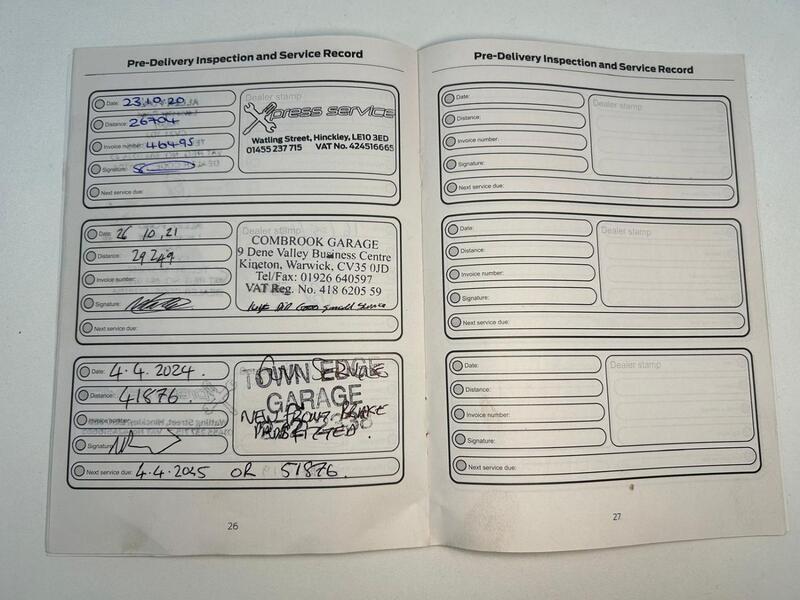 Pre-Delivery Inspection and Service Record
Date: 23.10.20
Distance: 26704
Invoice number: 46495
Signature:
Next service due:
Dealer stamp
Xpress service
Watling Street, Hinckley, LE10 3ED
01455 237 715 VAT No. 424516665
Date: 26 10,21
Distance: 29249
Invoice number:
Signature:
Next service due:
Dealer stamp
COMBROOK GARAGE
9 Dene Valley Business Centre
Kineton, Warwick, CV35 0JD
Tel/Fax: 01926 640597
VAT Reg. No. 418 6205 59
Small Service
Date: 4.4.2024.
Distance: 41876.
Invoice number:
Signature:
Next service due: 4.4.2025 OR 51876.
TOWN EDGE
GARAGE
SERVICE
NEW FRONT BRAKE
PADS FITTED.
26
Pre-Delivery Inspection and Service Record
Date:
Distance:
Invoice number:
Signature:
Next service due:
Dealer stamp
Date:
Distance:
Invoice number:
Signature:
Next service due:
Dealer stamp
Date:
Distance:
Invoice number:
Signature:
Next service due:
Dealer stamp
27